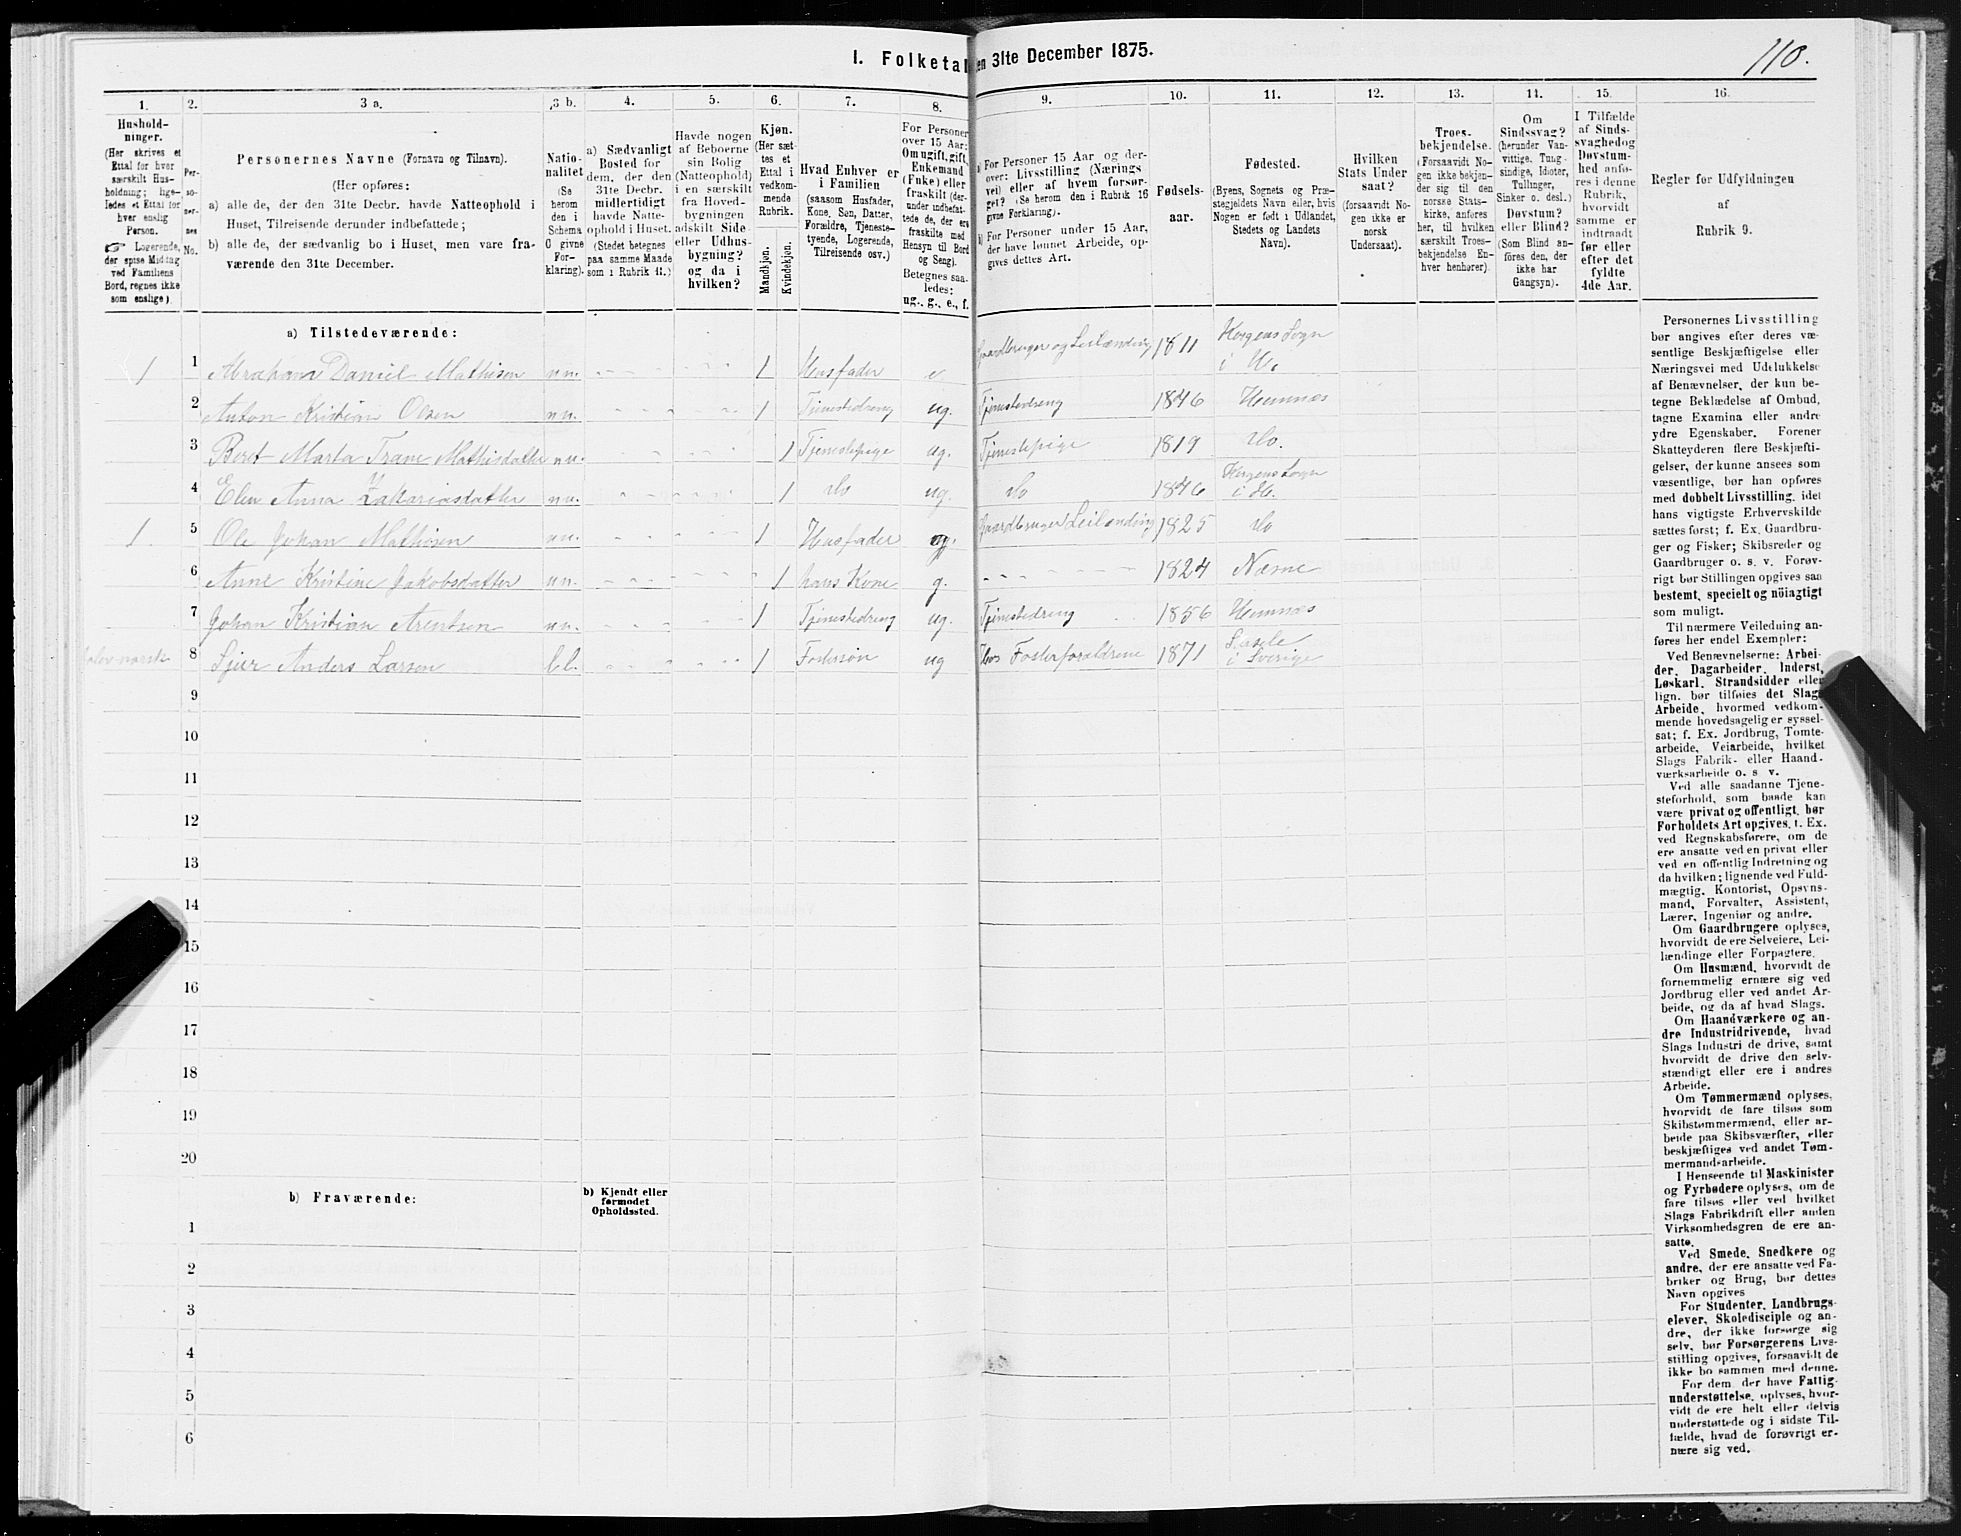 110.
I. Folketal
en 31te December 1875.
1. 2. 3 a. 3 b. 4. 5. 6. 7. 8. 9. 10. 11. 12. 13. 14. 15. 16.
Hushold-
ninger.
(Her skrives et
Ettal for hver
særskilt Hus-
holdning; lige-
ledes et Ettal for
hver enslig
Person.
☞ Logerende,
der spise Middag
ved Familiens
Bord, regnes ikke
som enslige).
Per-
so-
ner-
nes
No.
Personernes Navne (Fornavn og Tilnavn).
(Her opføres:
a) alle de, der den 31te Decbr. havde Natteophold i
Huset, Tilreisende derunder indbefattede;
b) alle de, der sædvanlig bo i Huset, men vare fra-
værende den 31te December.
Natio-
nalitet
(Se
herom
den i
Schema
O givne
For-
klaring).
a) Sædvanligt
Bosted for
dem, der den
31te Decbr.
midlertidigt
havde Natte-
ophold i Huset.
(Stedet betegnes
paa samme Maade
som i Rubrik 11.)
Havde nogen
af Beboerne
sin Bolig
(Natteophold)
i en særskilt
fra Hoved-
bygningen
adskilt Side-
eller Udhus-
bygning?
og da i
hvilken?
Kjøn.
(Her sæt-
tes et
Ettal i
vedkom-
mende
Rubrik.
Mandkjøn.
Kvindekjøn.
Hvad Enhver er
i Familien
(saasom Husfader,
Kone, Søn, Datter,
Forældre, Tjeneste-
tyende, Logerende,
Tilreisende osv.)
For Personer
over 15 Aar:
Om ugift, gift,
Enkemand
(Enke) eller
fraskilt (der-
under indbefat-
tede de, der ere
fraskilte med
Hensyn til Bord
og Seng).
Betegnes saa-
ledes:
ug., g., e., f.
a) For Personer 15 Aar og der-
over: Livsstilling (Nærings
vei) eller af hvem forsør-
get? (Se herom den i Rubrik 16
givne Forklaring).
b) For Personer under 15 Aar,
der have lønnet Arbeide, op-
gives dettes Art.
Fødsels-
aar.
Fødested.
(Byens, Sognets og Præ-
stegjeldets Navn eller, hvis
Nogen er født i Udlandet,
Stedets og Landets
Navn).
Hvilken
Stats Under
saat?
(forsaavidt No-
gen ikke er
norsk
Undersaat).
Troes-
bekjendelse.
(Forsaavidt No-
gen ikke bekjen-
der sig til den
norske Stats-
kirke, anføres
her, til hvilken
særskilt Troes-
bekjendelse En-
hver henhører).
Om
Sindssvag?
(herunder Van-
vittige, Tung-
sindige, Idioter,
Tullinger,
Sinker o. desl.)
Døvstum?
eller Blind?
(Som Blind an-
føres den, der
ikke har
Gangsyn).
I Tilfælde
af Sinds-
svaghed og
Døvstum-
hed anfø-
res i denne
Rubrik,
hvorvidt
samme er
indtraadt
før eller
efter det
fyldte
4de Aar.
Regler for Udfyldningen
af
Rubrik 9.
a) Tilstedeværende:
1 1 Abraham Daniel Mathisen nn. 1 Husfader e Gaardbruger og Leilænding 1811 Korgens Sogn
i Do.
2 Anton Kristian Olsen nn. 1 Tjenestedreng ug. Tjenestedreng 1846 Hemnæs
3 Beret Marta Trane Mathisdatter nn. 1 Tjenestepige ug. Tjenestepige 1819 Do.
4 Elen Anna Zakariasdatter nn. 1 Do ug. Do 1846 Korgens Sogn
i H.
1 5 Ole Johan Mathisen nn. 1 Husfader g. Gaardbruger Leilænding 1825 Do
6 Anne Kristine Jakobsdatter nn. 1 hans Kone g. 1824 Næsne
7 Johan Kristian Arentsen nn. 1 Tjenestedreng ug. Tjenestedreng 1856 Hemnæs
taler norsk 8 Sjur Anders Larsen l.l. 1 Fostersøn ug Hos Fosterforældrene 1871
i Sverige
9
10
11
12
13
14
15
16
17
18
19
20
b) Fraværende:
b) Kjendt eller
formodet
Opholdssted.
1
2
3
4
5
6
Personernes Livsstilling
bør angives efter deres væ-
sentlige Beskjæftigelse eller
Næringsvei med Udelukkelse
af Benævnelser, der kun be-
tegne Beklædelse af Ombud,
tagne Examina eller andre
ydre Egenskaber. Forener
Skatteyderen flere Beskjæfti-
gelser, der kunne ansees som
væsentlige, bør han opføres
med dobbelt Livsstilling, idet
hans vigtigste Erhvervskilde
sættes først; f. Ex. Gaardbru-
ger og Fisker; Skibsreder og
Gaardbruger o. s. v. Forøv-
rigt bør Stillingen opgives saa
bestemt, specielt og nöiagtigt
som muligt.
Til nærmere Veiledning an-
føres her endel Exempler:
Ved Benævnelserne: Arbei-
der, Dagarbeider, Inderst,
Løskarl, Strandsidder eller
lign. bør tilføies det Slags
Arbeide, hvormed vedkom-
mende hovedsagelig er syssel-
sat; f. Ex. Jordbrug, Tomte-
arbeide, Veiarbeide, hvilket
Slags Fabrik- eller Haand-
værksarbeide o. s. v.
Ved alle saadanne Tjene-
steforhold, som baade kan
være privat og offentligt, bør
Forholdets Art opgives, t. Ex.
ved Regnskabsførere, om de
ere ansatte ved en privat eller
ved en offentlig Indretning og
da hvilken; lignende ved Fuld-
mægtig, Kontorist, Opsyns-
mand, Forvalter, Assistent,
Lærer, Ingeniør og andre.
Om Gaardbrugere oplyses,
hvorvidt de ere Selveiere, Lei-
lændinge eller Forpagtere.
Om Husmænd, hvorvidt de
fornemmelig ernære sig ved
Jordbrug eller ved andet Ar-
beide, og da af hvad Slags.
Om Haandværkere og an-
dre Industridrivende, hvad
Slags Industri de drive, samt
hvorvidt de drive den selv-
stændigt eller ere i andres
Arbeide.
Om Tømmermænd oplyses,
hvorvidt de fare tilsøs som
Skibstømmermænd, eller ar-
beide paa Skibsværfter, eller
beskjæftiges ved andet Tøm-
mermandsarbeide.
I Henseende til Maskinister
og Fyrbødere oplyses, om de
fare tilsøs eller ved hvilket
Slags Fabrikdrift eller anden
Virksomhedsgren de ere an-
satte.
Ved Smede, Snedkere og
andre, der ere ansatte ved Fa-
briker og Brug, bør dettes
Navn opgives
For Studenter, Landbrugs-
elever, Skoledisciple og an-
dre, der ikke forsørge sig
selv, bør Forsørgerens Livs-
stilling opgives, forsaavidt de
ikke bo sammen med denne.
For dem, der have Fattig-
understøttelse, oplyses, hvor-
vidt de ere helt eller delvis
understøttede og i sidste Til-
fælde, hvad de forøvrigt er-
nære sig ved.